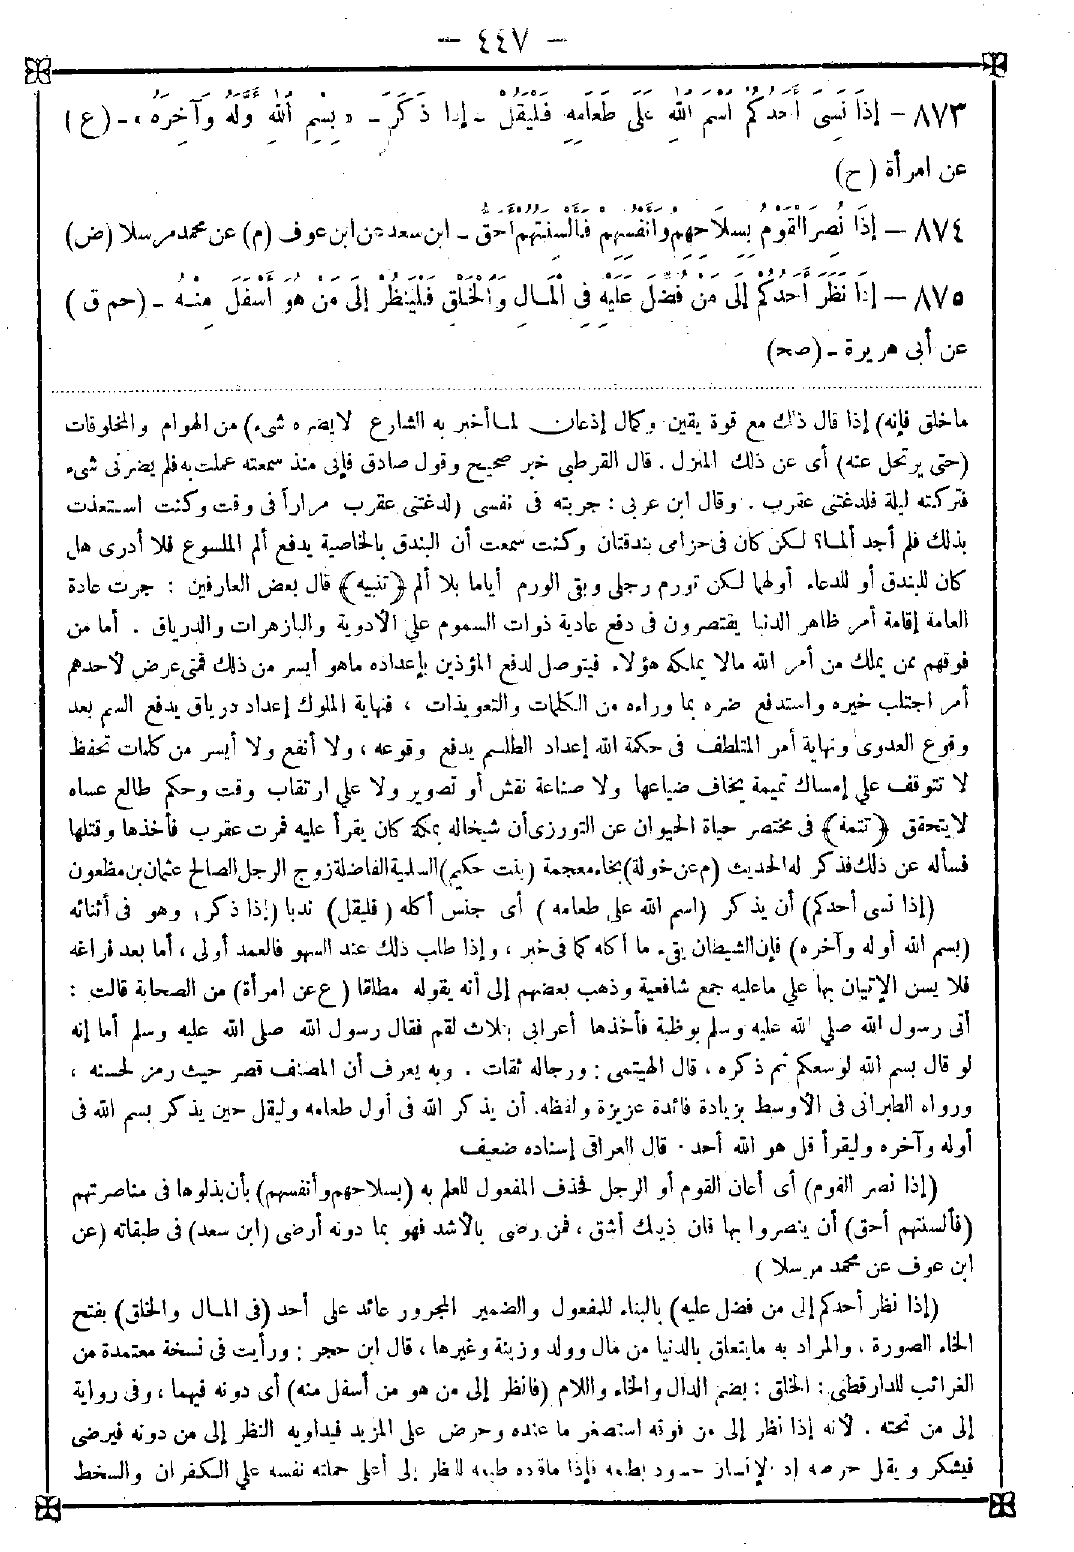 — ٤٤٧ —
٨٧٣ — إِذَا نَسِيَ أَحَدُكُمْ اسْمَ اللهِ عَلَى طَعَامِهِ فَلْيَقُلْ - إِذَا ذَكَرَ - «بِسْمِ اللهِ أَوَّلَهُ وَآخِرَهُ» - (ع)
عن امرأة (ح)
٨٧٤ — إِذَا نُصِرَ الْقَوْمُ بِسِلَاحِهِمْ وَأَنْفُسِهِمْ فَأَلْسِنَتُهُمْ أَحَقُّ - ابن سعد عن ابن عوف (م) عن محمد مرسلا (ض)
٨٧٥ — إِذَا نَظَرَ أَحَدُكُمْ إِلَى مَنْ فُضِّلَ عَلَيْهِ فِى الْمَالِ وَالْخَلْقِ فَلْيَنْظُرْ إِلَى مَنْ هُوَ أَسْفَلَ مِنْهُ - (حم ق)
عن أبى هريرة - (صح)
ماخلق فإنه) إذا قال ذلك مع قوة يقين وكمال إذعان لما أخبر به الشارع لايضره شىء) من الهوام والمخلوقات
(حتى يرتحل عنه) أى عن ذلك المنزل . قال القرطبى خبر صحيح وقول صادق فإنى منذ سمعته عملت به فلم يضرنى شىء
فتركته ليلة فلدغتنى عقرب . وقال ابن عربى : جربته فى نفسى (لدغتنى عقرب مراراً فى وقت وكنت استعذت
بذلك فلم أجد ألما؟ لكن كان فى حزامى بندقتان وكنت سمعت أن البندق بالخاصية يدفع ألم الملسوع فلا أدرى هل
كان للبندق أو للدعاء أولهما لكن تورم رجلى وبقى الورم أياما بلا ألم ﴿تنبيه﴾ قال بعض العارفين : جرت عادة
العامة إقامة أمر ظاهر الدنيا يقتصرون فى دفع عادية ذوات السموم على الأدوية والبازهرات والدرياق . أما من
فوقهم ممن يملك من أمر الله مالا يملكه هؤلاء فيتوصل لدفع المؤذين بإعداده ماهو أيسر من ذلك فمتى عرض لأحدهم
أمر اجتلب خيره واستدفع ضره بما وراءه من الكلمات والتعويذات ، فنهاية الملوك إعداد درياق يدفع السم بعد
وقوع العدوى ونهاية أمر المتلطف فى حكمة الله إعداد الطلسم يدفع وقوعه ، ولا أنفع ولا أيسر من كلمات تحفظ
لا تتوقف على إمساك تميمة يخاف ضياعها ولا صناعة نقش أو تصوير ولا على ارتقاب وقت وحكم طالع عساه
لايتحقق ﴿تتمة﴾ فى مختصر حياة الحيوان عن التورزى أن شيخاله بمكة كان يقرأ عليه فمرت عقرب فأخذها وقتلها
فسأله عن ذلك فذكر له الحديث (م عن خولة) بخاء معجمة (بنت حكيم) السلمية الفاضلة زوج الرجل الصالح عثمان بن مظعون
(إذا نسى أحدكم) أن يذكر (اسم الله على طعامه) أى جنس أكله (فليقل) ندبا (إذا ذكر) وهو فى أثنائه
(بسم الله أوله وآخره) فإن الشيطان يقىء ما أكله كما فى خبر ، وإذا طلب ذلك عند السهو فالعمد أولى ، أما بعد فراغه
فلا يسن الإتيان بها على ماعليه جمع شافعية وذهب بعضهم إلى أنه يقوله مطلقا (ع عن امرأة) من الصحابة قالت :
أتى رسول الله صلى الله عليه وسلم بوطبة فأخذها أعرابى بثلاث لقم فقال رسول الله صلى الله عليه وسلم أما إنه
لو قال بسم الله لوسعكم ثم ذكره ، قال الهيتمى : ورجاله ثقات . وبه يعرف أن المصنف قصر حيث رمز لحسنه ،
ورواه الطبرانى فى الأوسط بزيادة فائدة عزيزة ولفظه. أن يذكر الله فى أول طعامه وليقل حين يذكر بسم الله فى
أوله وآخره وليقرأ قل هو الله أحد . قال العراقى إسناده ضعيف
(إذا نصر القوم) أى أعان القوم أو الرجل فحذف المفعول للعلم به (بسلاحهم وأنفسهم) بأن بذلوها فى مناصرتهم
(فألسنتهم أحق) أن ينصروا بها فان ذيك أشق ، فمن رضى بالأشد فهو بما دونه أرضى (ابن سعد) فى طبقاته (عن
ابن عوف عن محمد مرسلا)
(إذا نظر أحدكم إلى من فضل عليه) بالبناء للمفعول والضمير المجرور عائد على أحد (فى المال والخلق) بفتح
الخاء الصورة ، والمراد به مايتعلق بالدنيا من مال وولد وزينة وغيرها ، قال ابن حجر : ورأيت فى نسخة معتمدة من
الغرائب للدارقطنى : الخلق : بضم الدال والخاء واللام (فانظر إلى من هو من أسفل منه) أى دونه فيهما ، وفى رواية
إلى من تحته . لأنه إذا نظر إلى من فوقه استصغر ما عنده وحرص على المزيد فيداويه النظر إلى من دونه فيرضى
فيشكر ويقل حرصه إذ الإنسان حسود بطبعه فإذا ماقده طبعه للنظر إلى أعلى حملته نفسه على الكفران والسخط